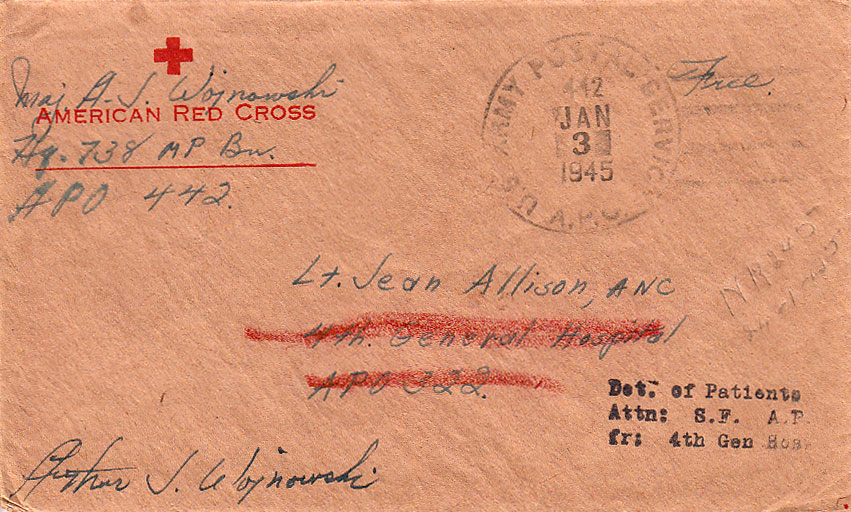 Maj. A. J. Wojnowski
AMERICAN RED CROSS
Hq. 738 MP Bn.
APO 442.
U.S. ARMY POSTAL SERVICE A.P.O.
442
JAN
3
1945
Free.
Lt. Jean Allison, ANC
4th. General Hospital
APO 322.
Det. of Patients
Attn: S.F. A.P.
fr: 4th Gen Hos.
Arthur J. Wojnowski